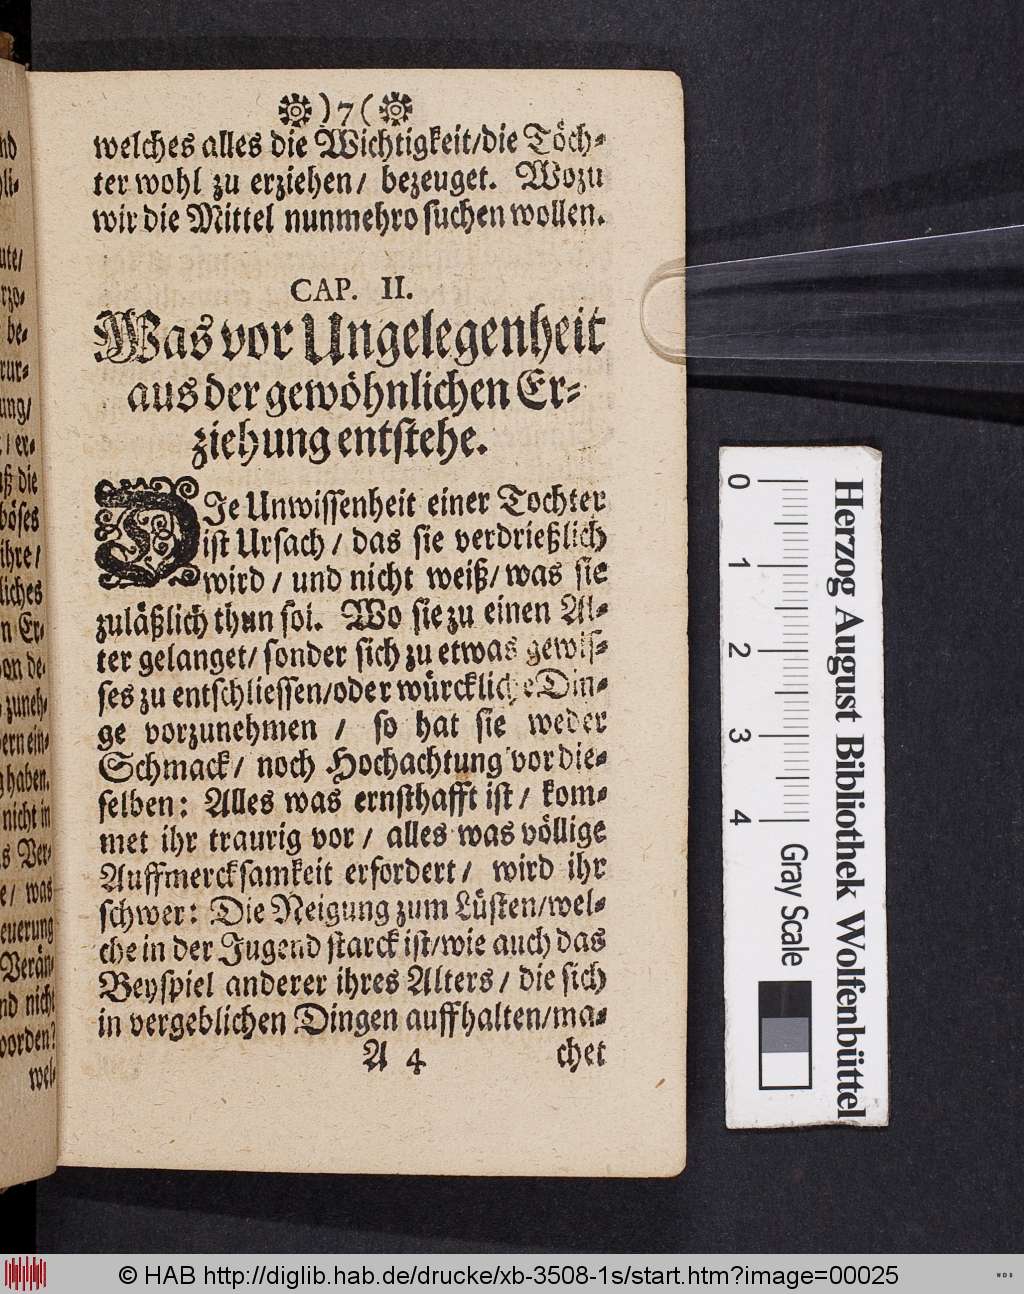 )7(
welches alles die Wichtigkeit/die Töch-
ter wohl zu erziehen/ bezeuget. Wozu
wir die Mittel nunmehro suchen wollen.
CAP. II.
Was vor Ungelegenheit
aus der gewöhnlichen Er-
ziehung entstehe.
DIe Unwissenheit einer Tochter
ist Ursach/ das sie verdrießlich
wird/ und nicht weiß/ was sie
zuläßlich thun sol. Wo sie zu einen Al-
ter gelanget/ sonder sich zu etwas gewis-
ses zu entschliessen/oder würckliche Din-
ge vorzunehmen / so hat sie weder
Schmack/ noch Hochachtung vor die-
selben: Alles was ernsthafft ist/ kom-
met ihr traurig vor/ alles was völlige
Auffmercksamkeit erfordert/ wird ihr
schwer: Die Neigung zum Lüsten/wel-
che in der Jugend starck ist/wie auch das
Beyspiel anderer ihres Alters/ die sich
in vergeblichen Dingen auffhalten/ma-
A 4 chet
ute/
be-
ung/
/ er-
die
böses
ihre/
liches
n Er-
on de-
zuneh-
ern ein-
haben.
nicht in
s Ver-
e/ was
euerung
Verän-
nd nicht
worden?
wel-
0 1 2 3 4
Gray Scale
Herzog August Bibliothek Wolfenbüttel
© HAB http://diglib.hab.de/drucke/xb-3508-1s/start.htm?image=00025
WDB